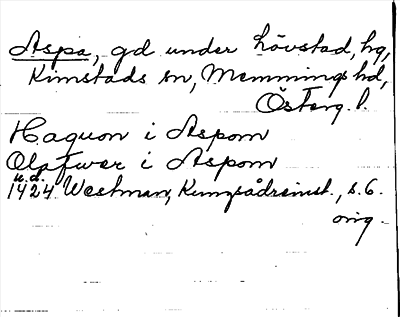 Aspa, gd under Lövstad, hg,
Kimstads sn, Memmings hd,
Österg. l.
Haquon i Aspom
Olafwer i Aspom
u.d.
1424 Westman, Kungsådreinst., s. 6.
orig.